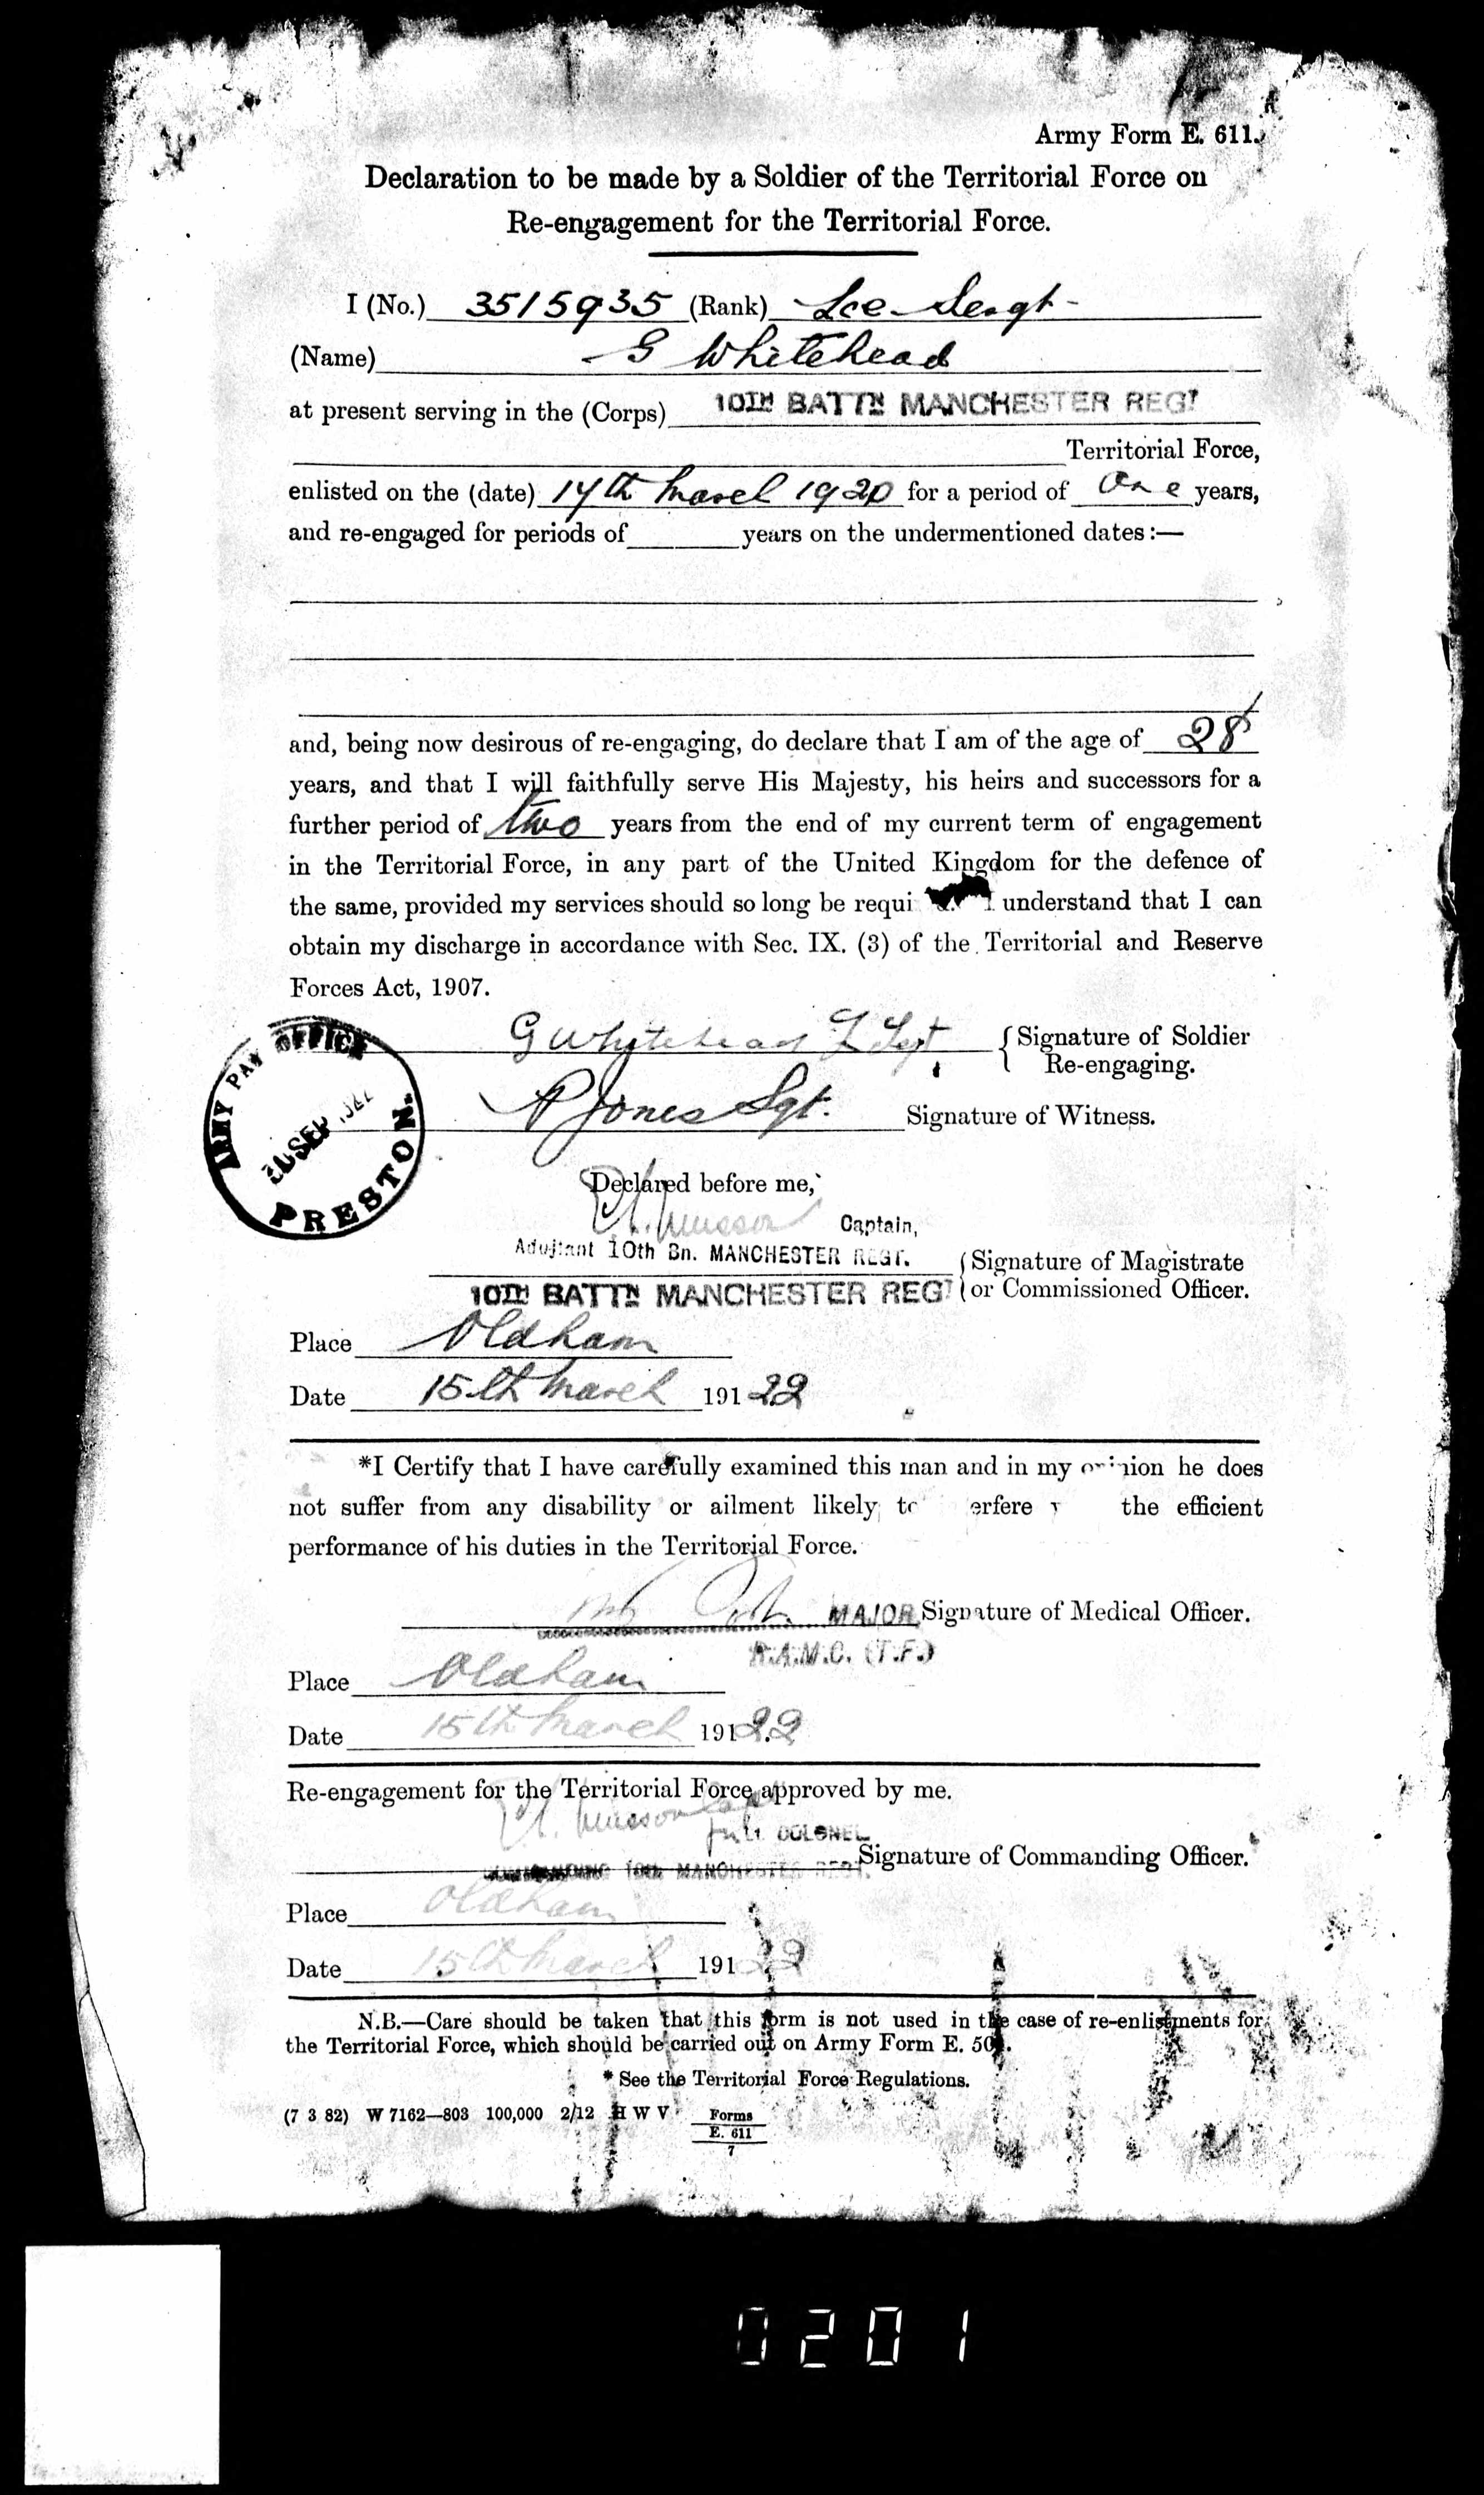 Army Form E. 611.
Declaration to be made by a Soldier of the Territorial Force on
Re-engagement for the Territorial Force.
I (No.) 3515935 (Rank) Lce Sergt-
(Name) G Whitehead
at present serving in the (Corps) 10TH BATTN MANCHESTER REGT
Territorial Force,
enlisted on the (date) 14th March 1920 for a period of One years,
and re-engaged for periods of years on the undermentioned dates:—
and, being now desirous of re-engaging, do declare that I am of the age of 28
years, and that I will faithfully serve His Majesty, his heirs and successors for a
further period of two years from the end of my current term of engagement
in the Territorial Force, in any part of the United Kingdom for the defence of
the same, provided my services should so long be requi I understand that I can
obtain my discharge in accordance with Sec. IX. (3) of the Territorial and Reserve
Forces Act, 1907.
G Whytehead L Sgt Signature of Soldier
Re-engaging.
ARMY PAY OFFICE
30 SEP 1922
PRESTON.
P Jones Sgt. Signature of Witness.
Declared before me,
Musson Captain,
Adujtant 10th Bn. MANCHESTER REGT. Signature of Magistrate
10TH BATTN MANCHESTER REGT or Commissioned Officer.
Place Oldham
Date 15th March 191 22
*I Certify that I have carefully examined this man and in my opinion he does
not suffer from any disability or ailment likely to erfere the efficient
performance of his duties in the Territorial Force.
MAJOR Signature of Medical Officer.
R.A.M.C. (T.F.)
Place Oldham
Date 15th March 191 22
Re-engagement for the Territorial Force approved by me.
Musson Capt
for Lt. COLONEL
COMMANDING 10th MANCHESTER REGT. Signature of Commanding Officer.
Place Oldham
Date 15th March 191 22
N.B.—Care should be taken that this form is not used in the case of re-enlistments for
the Territorial Force, which should be carried out on Army Form E. 50.
* See the Territorial Force Regulations.
(7 3 82) W 7162—803 100,000 2/12 H W V Forms
E. 611
7
0201